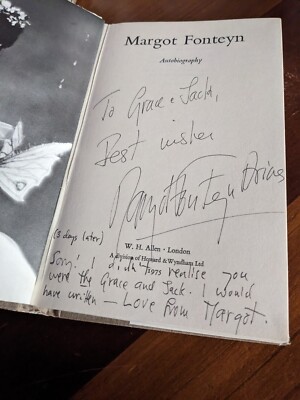 Margot Fonteyn
Autobiography
To Grace & Jack,
Best wishes
Margot Fonteyn Arias
(3 days later)
W. H. Allen · London
A division of Howard & Wyndham Ltd
Sorry! I did not realise you
were the Grace and Jack. I would
have written — Love from Margot.